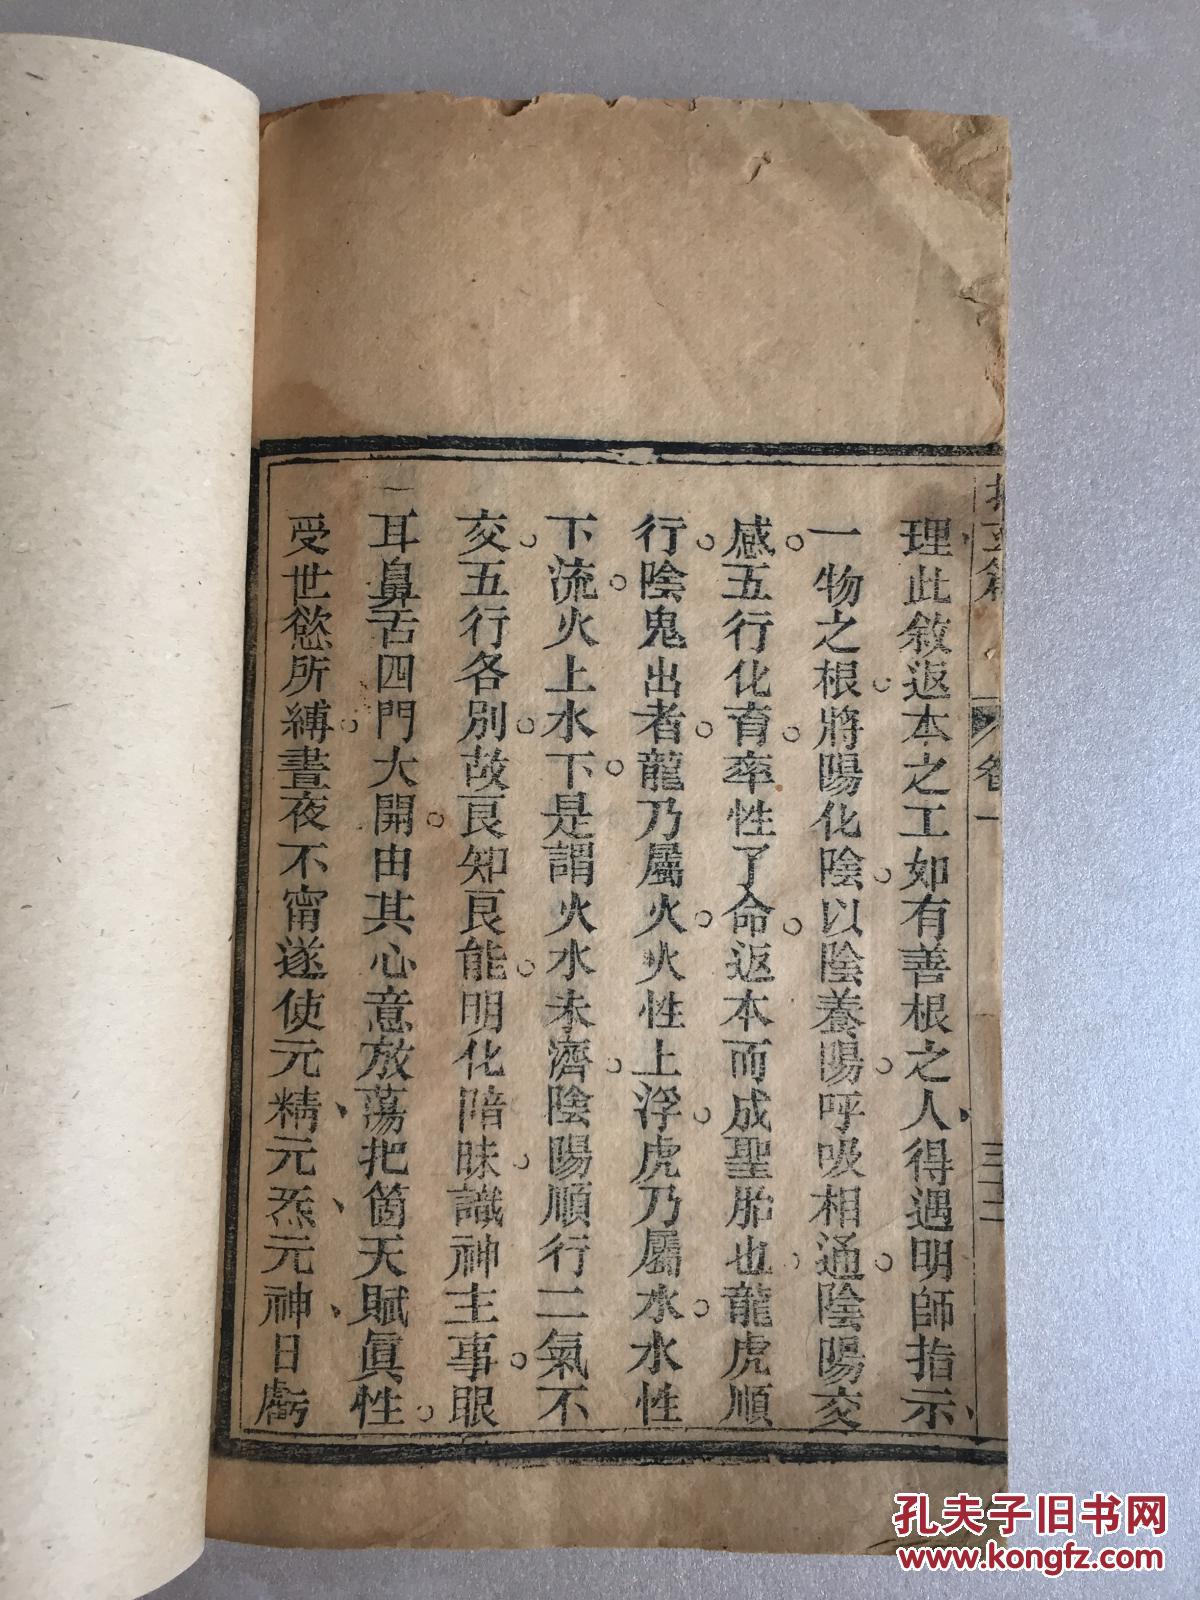 卷一
理此敘返本之工如有善根之人得遇明師指示
一物之根將陽化陰以陰養陽呼吸相通陰陽交
感五行化育率性了命返本而成聖胎也龍虎順
行陰鬼出者龍乃屬火火性上浮虎乃屬水水性
下流火上水下是謂火水未濟陰陽順行二氣不
交五行各別故良知良能明化陪昧識神主事眼
耳鼻舌四門大開由其心意放蕩把箇天賦眞性
受世慾所縛晝夜不甯遂使元精元炁元神日虧
孔夫子旧书网
www.kongfz.com